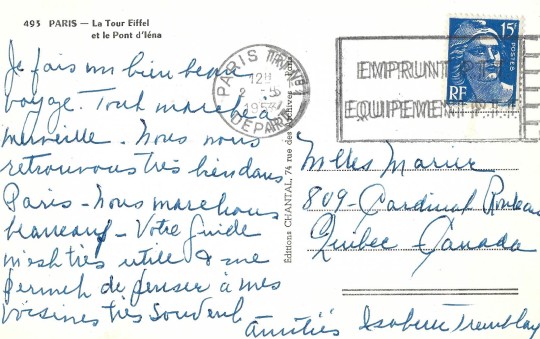 493 PARIS — La Tour Eiffel
et le Pont d'Iéna
Je fais un bien beau
voyage. Tout marche à
merveille. Nous nous
retrouvons très bien dans
Paris - Nous marchons
beaucoup - Votre guide
m'est très utile & me
permet de penser à mes
voisines très souvent
Amitiés Isabelle Tremblay
PARIS
12H
DEPART
EMPRUNT
EQUIPEMENT
15F
POSTES
RF
Éditions CHANTAL, 74 rue des Archives - Paris
Mlles Marier
809 - Cardinal Rouleau
Québec - Canada